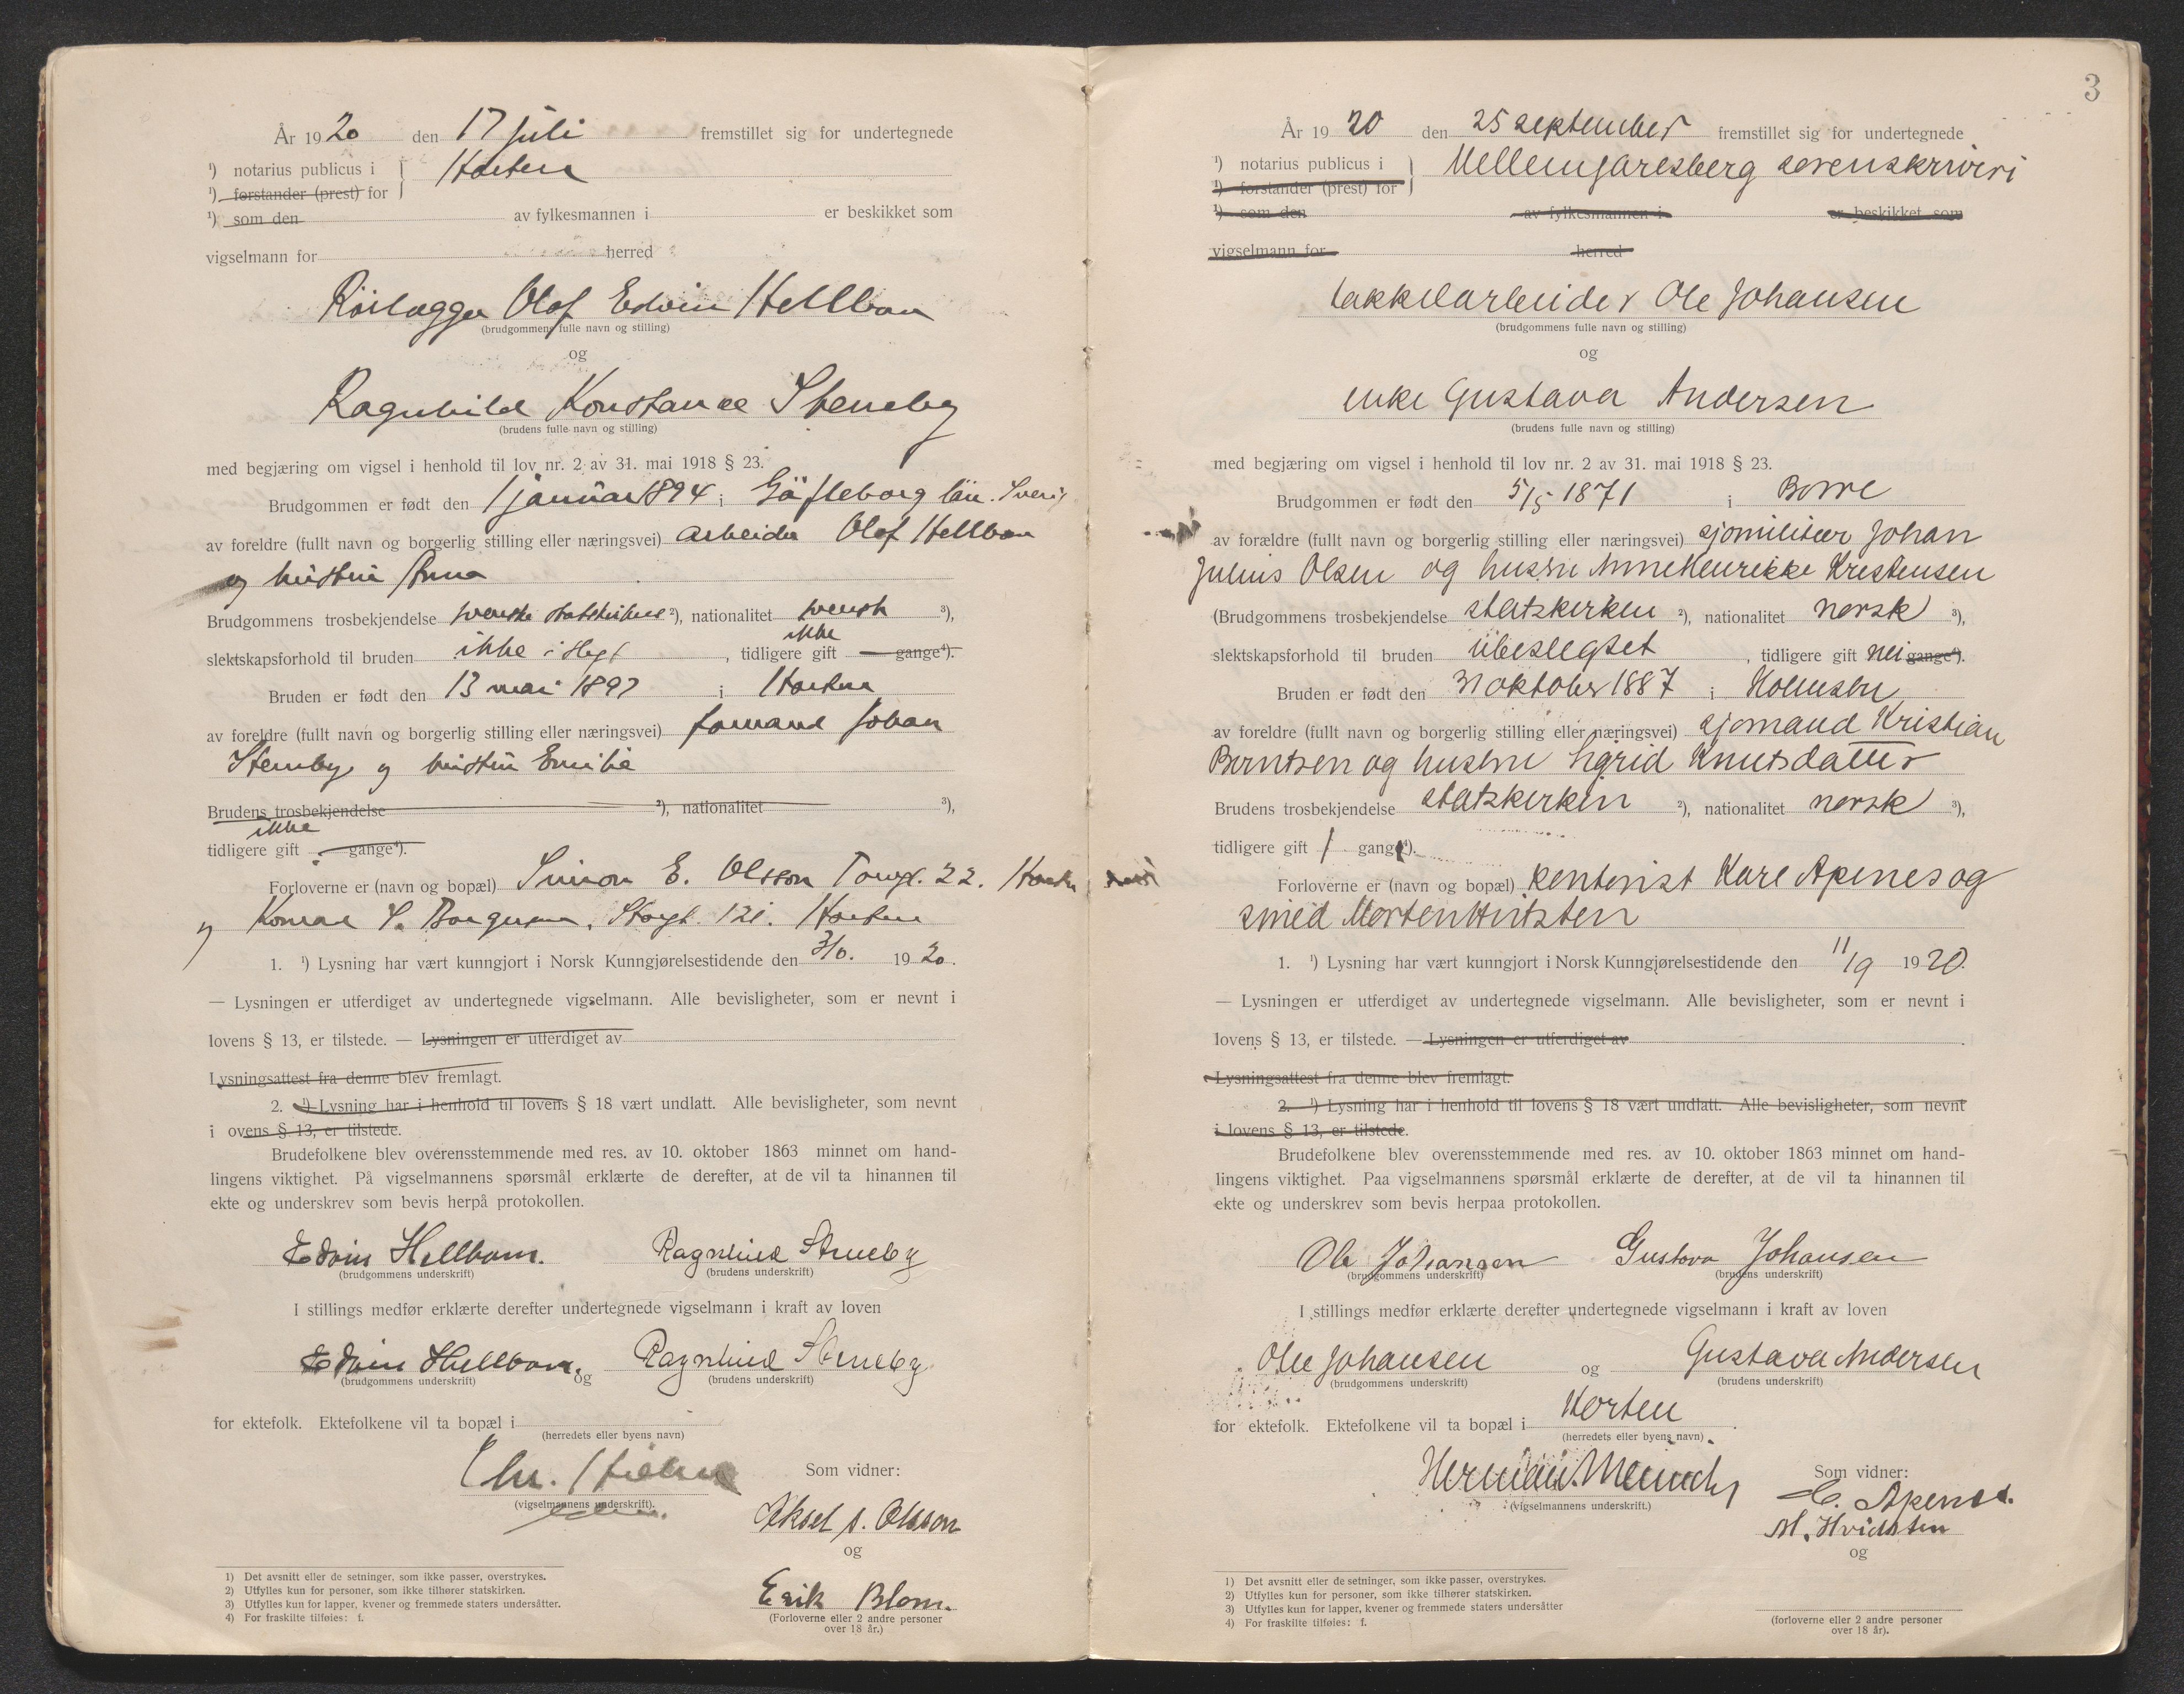 År 1920 den 17 juli fremstillet sig for undertegnede
¹) notarius publicus i } Horten
¹) forstander (prest) for
¹) som den av fylkesmannen i er beskikket som
vigselmann for herred
Rørlægger Olof Edvin Hellbom
(brudgommens fulle navn og stilling)
og
Ragnhild Konstance Steneby
(brudens fulle navn og stilling)
med begjæring om vigsel i henhold til lov nr. 2 av 31. mai 1918 § 23.
Brudgommen er født den 1 januar 1894 i Gäfleborg län. Sverig
av foreldre (fullt navn og borgerlig stilling eller næringsvei) arbeider Olof Hellbom
og hustru Anna
Brudgommens trosbekjendelse svenske statskirke ²), nationalitet svensk ³),
slektskapsforhold til bruden ikke i slegt, tidligere gift ikke gange⁴).
Bruden er født den 13 mai 1897 i Horten
av foreldre (fullt navn og borgerlig stilling eller næringsvei) formand Johan
Steneby og hustru Emilie
Brudens trosbekjendelse ²), nationalitet ³),
ikke
tidligere gift gange⁴).
Forloverne er (navn og bopæl) Simon E. Olsson Tougt. 22. Horten
og Konrad S. Borgersen, Storgt. 121. Horten
1. ¹) Lysning har vært kunngjort i Norsk Kunngjørelsestidende den 1920.
— Lysningen er utferdiget av undertegnede vigselmann. Alle bevisligheter, som er nevnt i
lovens § 13, er tilstede. — Lysningen er utferdiget av
Lysningsattest fra denne blev fremlagt.
2. ¹) Lysning har i henhold til lovens § 18 vært undlatt. Alle bevisligheter, som nevnt
i ovens § 13, er tilstede.
Brudefolkene blev overensstemmende med res. av 10. oktober 1863 minnet om hand-
lingens viktighet. På vigselmannens spørsmål erklærte de derefter, at de vil ta hinannen til
ekte og underskrev som bevis herpå protokollen.
Edvin Hellbom. Ragnhild Steneby
(brudgommens underskrift) (brudens underskrift)
I stillings medfør erklærte derefter undertegnede vigselmann i kraft av loven
Edvin Hellbom. og Ragnhild Steneby
(brudgommens underskrift) (brudens underskrift)
for ektefolk. Ektefolkene vil ta bopæl i
(herredets eller byens navn)
Chr.
Som vidner:
(vigselmannens underskrift).
Aksel s. Olsson
og
Erik Blom.
(Forloverne eller 2 andre personer
over 18 år.)
1) Det avsnitt eller de setninger, som ikke passer, overstrykes.
2) Utfylles kun for personer, som ikke tilhører statskirken.
3) Utfylles kun for lapper, kvener og fremmede staters undersåtter.
4) For fraskilte tilføies: f.
3
År 1920 den 25 september fremstillet sig for undertegnede
¹) notarius publicus i } Mellemjarlsberg sorenskriveri
¹) forstander (prest) for
¹) som den av fylkesmannen i er beskikket som
vigselmann for herred
takkelarbeider Ole Johansen
(brudgommens fulle navn og stilling)
og
enke Gustava Andersen
(brudens fulle navn og stilling)
med begjæring om vigsel i henhold til lov nr. 2 av 31. mai 1918 § 23.
Brudgommen er født den 5/5 1871 i Borre
av forældre (fullt navn og borgerlig stilling eller næringsvei) sjømilitær Johan
Julius Olsen og hustru Anne Henrikke Kristensen
(Brudgommens trosbekjendelse statskirken ²), nationalitet norsk ³),
slektskapsforhold til bruden ubeslegtet, tidligere gift nei gange⁴).
Bruden er født den 31 oktober 1887 i Holmsbu
av foreldre (fullt navn og borgerlig stilling eller næringsvei) sjømand Kristian
Berntsen og hustru Sigrid Knutsdatter
Brudens trosbekjendelse statskirken ²), nationalitet norsk ³),
tidligere gift 1 gang⁴).
Forloverne er (navn og bopæl) kontorist Kare Apenes og
smed Morten Hvitsten
1. ¹) Lysning har vært kunngjort i Norsk Kunngjørelsestidende den 11/9 1920.
— Lysningen er utferdiget av undertegnede vigselmann. Alle bevisligheter, som er nevnt i
lovens § 13, er tilstede. — Lysningen er utferdiget av
Lysningsattest fra denne blev fremlagt.
2. ¹) Lysning har i henhold til lovens § 18 vært undlatt. Alle bevisligheter, som nevnt
i lovens § 13, er tilstede.
Brudefolkene blev overensstemmende med res. av 10. oktober 1863 minnet om hand-
lingens viktighet. Paa vigselmannens spørsmål erklærte de derefter, at de vil ta hinannen til
ekte og underskrev som bevis herpaa protokollen.
Ole Johansen Gustava Johansen
(brudgommens underskrift) (brudens underskrift)
I stillings medfør erklærte derefter undertegnede vigselmann i kraft av loven
Ole Johansen og Gustava Andersen
(brudgommens underskrift) (brudens underskrift)
for ektefolk. Ektefolkene vil ta bopæl i Horten
(herredets eller byens navn).
Herman Meinich
Som vidner:
(vigselmannens underskrift.)
K. Apenes.
M. Hvidsten
og
(forloverne eller 2 andre personer
over 18 år).
1) Det avsnitt eller de setninger, som ikke passer, overstrykes.
2) Utfylles kun for personer, som ikke tilhører statskirken.
3) Utfylles kun for lapper, kvener og fremmede staters undersåtter
4) For fraskilte tilføies: f.